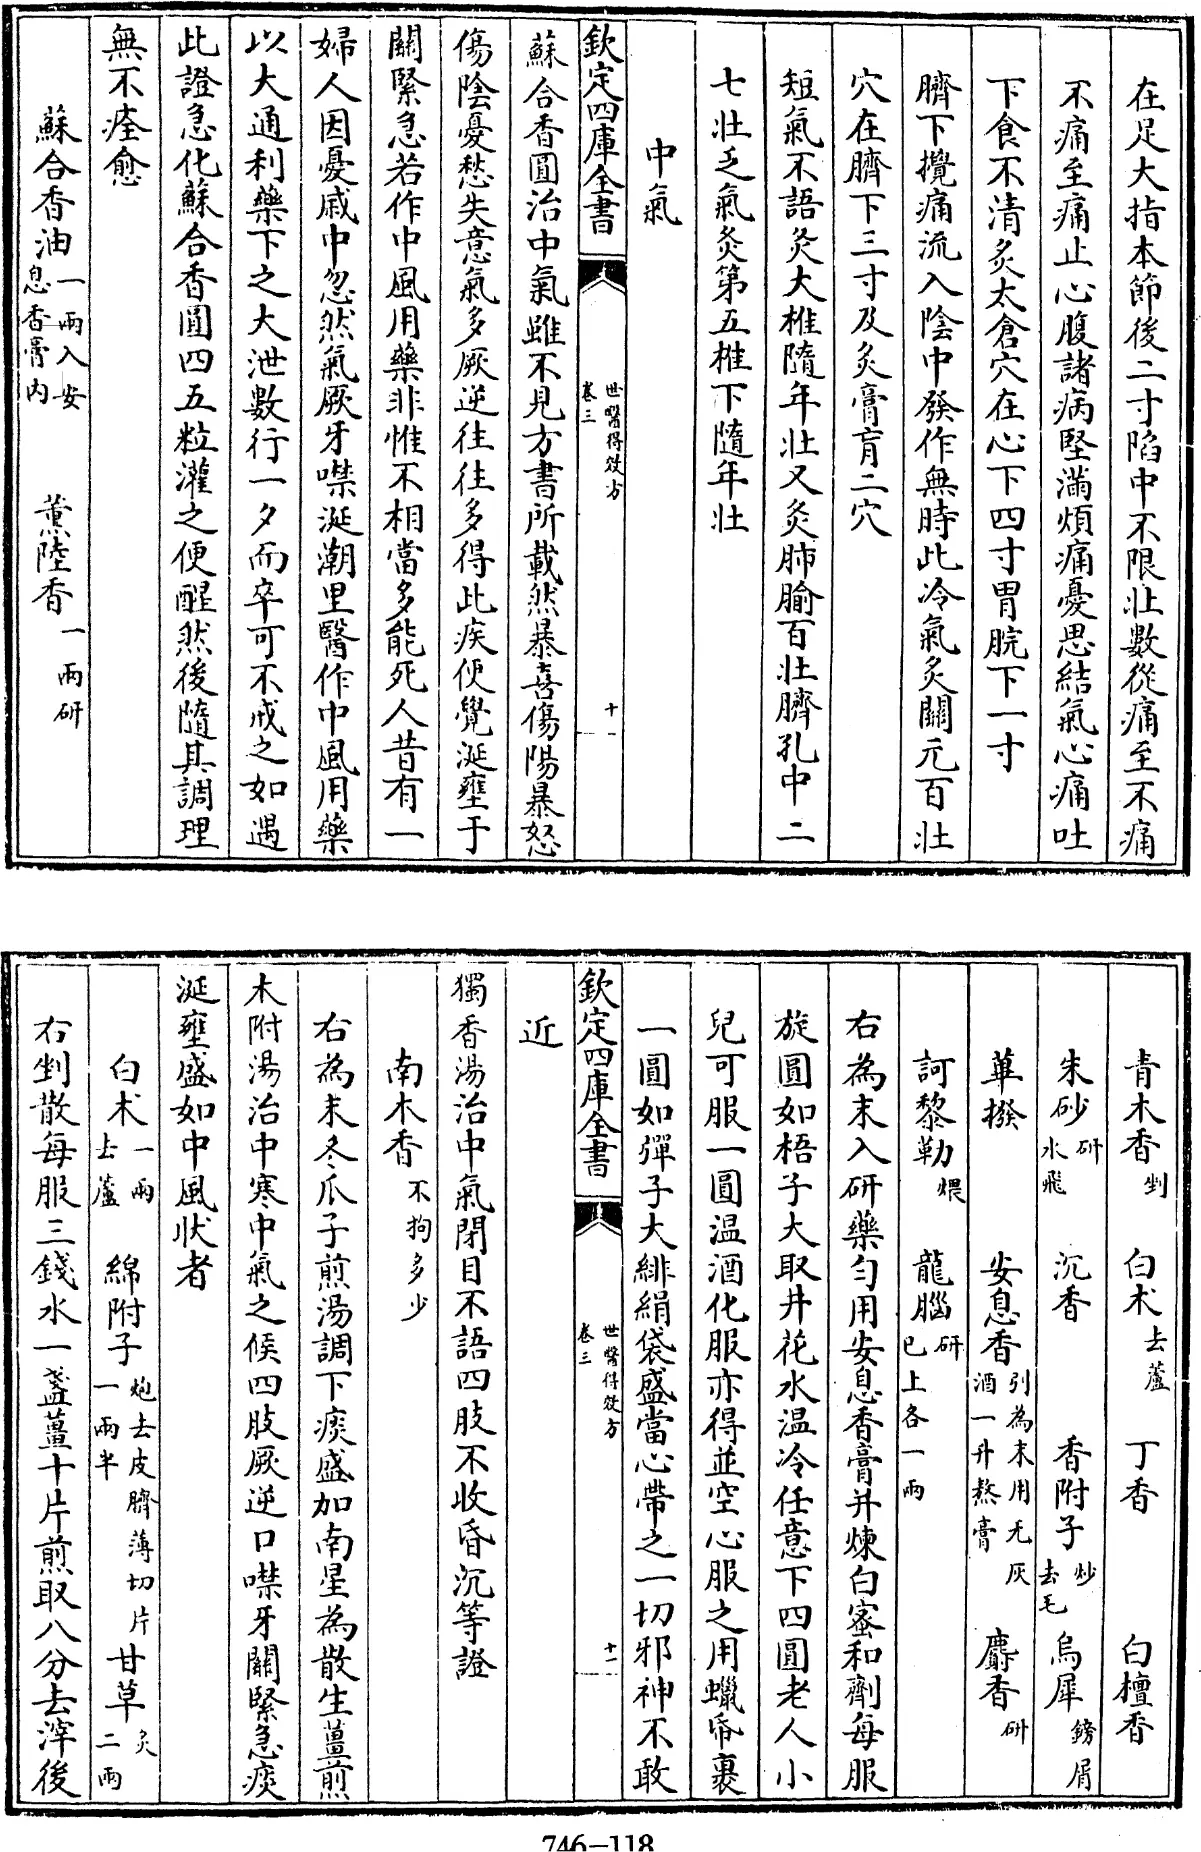 在足大指本節後二寸陷中不限壯數從痛至不痛
不痛至痛止心腹諸病堅滿煩痛憂思結氣心痛吐
下食不清灸太倉穴在心下四寸胃脘下一寸
臍下攪痛流入陰中發作無時此冷氣灸關元百壯
穴在臍下三寸及灸膏肓二穴
短氣不語灸大椎隨年壯又灸肺腧百壯臍孔中二
七壯乏氣灸第五椎下隨年壯
中氣
欽定四庫全書
世醫得效方
卷三
十一
蘇合香圓治中氣雖不見方書所載然暴喜傷陽暴怒
傷陰憂愁失意氣多厥逆往往多得此疾便覺涎壅于
關緊急若作中風用藥非惟不相當多能死人昔有一
婦人因憂戚中忽然氣厥牙噤涎潮里醫作中風用藥
以大通利藥下之大泄數行一夕而卒可不戒之如遇
此證急化蘇合香圓四五粒灌之便醒然後隨其調理
無不痊愈
蘇合香油一兩入安息香膏內 薰陸香一兩研
青木香剉 白朮去蘆 丁香 白檀香
朱砂研水飛 沉香 香附子炒去毛 烏犀鎊屑
蓽撥 安息香引為末用无灰酒一升熬膏 麝香研
訶黎勒煨 龍腦研已上各一兩
右為末入研藥匀用安息香膏并煉白蜜和劑每服
旋圓如梧子大取井花水温冷任意下四圓老人小
兒可服一圓温酒化服亦得並空心服之用蠟帋裹
一圓如彈子大緋絹袋盛當心帶之一切邪神不敢
欽定四庫全書
世醫得效方
卷三
十一
近
獨香湯治中氣閉目不語四肢不收昏沉等證
南木香不拘多少
右為末冬瓜子煎湯調下痰盛加南星為散生薑煎
木附湯治中寒中氣之候四肢厥逆口噤牙關緊急痰
涎壅盛如中風狀者
白朮一兩去蘆 綿附子炮去皮臍薄切片一兩半 甘草炙二兩
右剉散每服三錢水一盞薑十片煎取八分去滓後
746-118